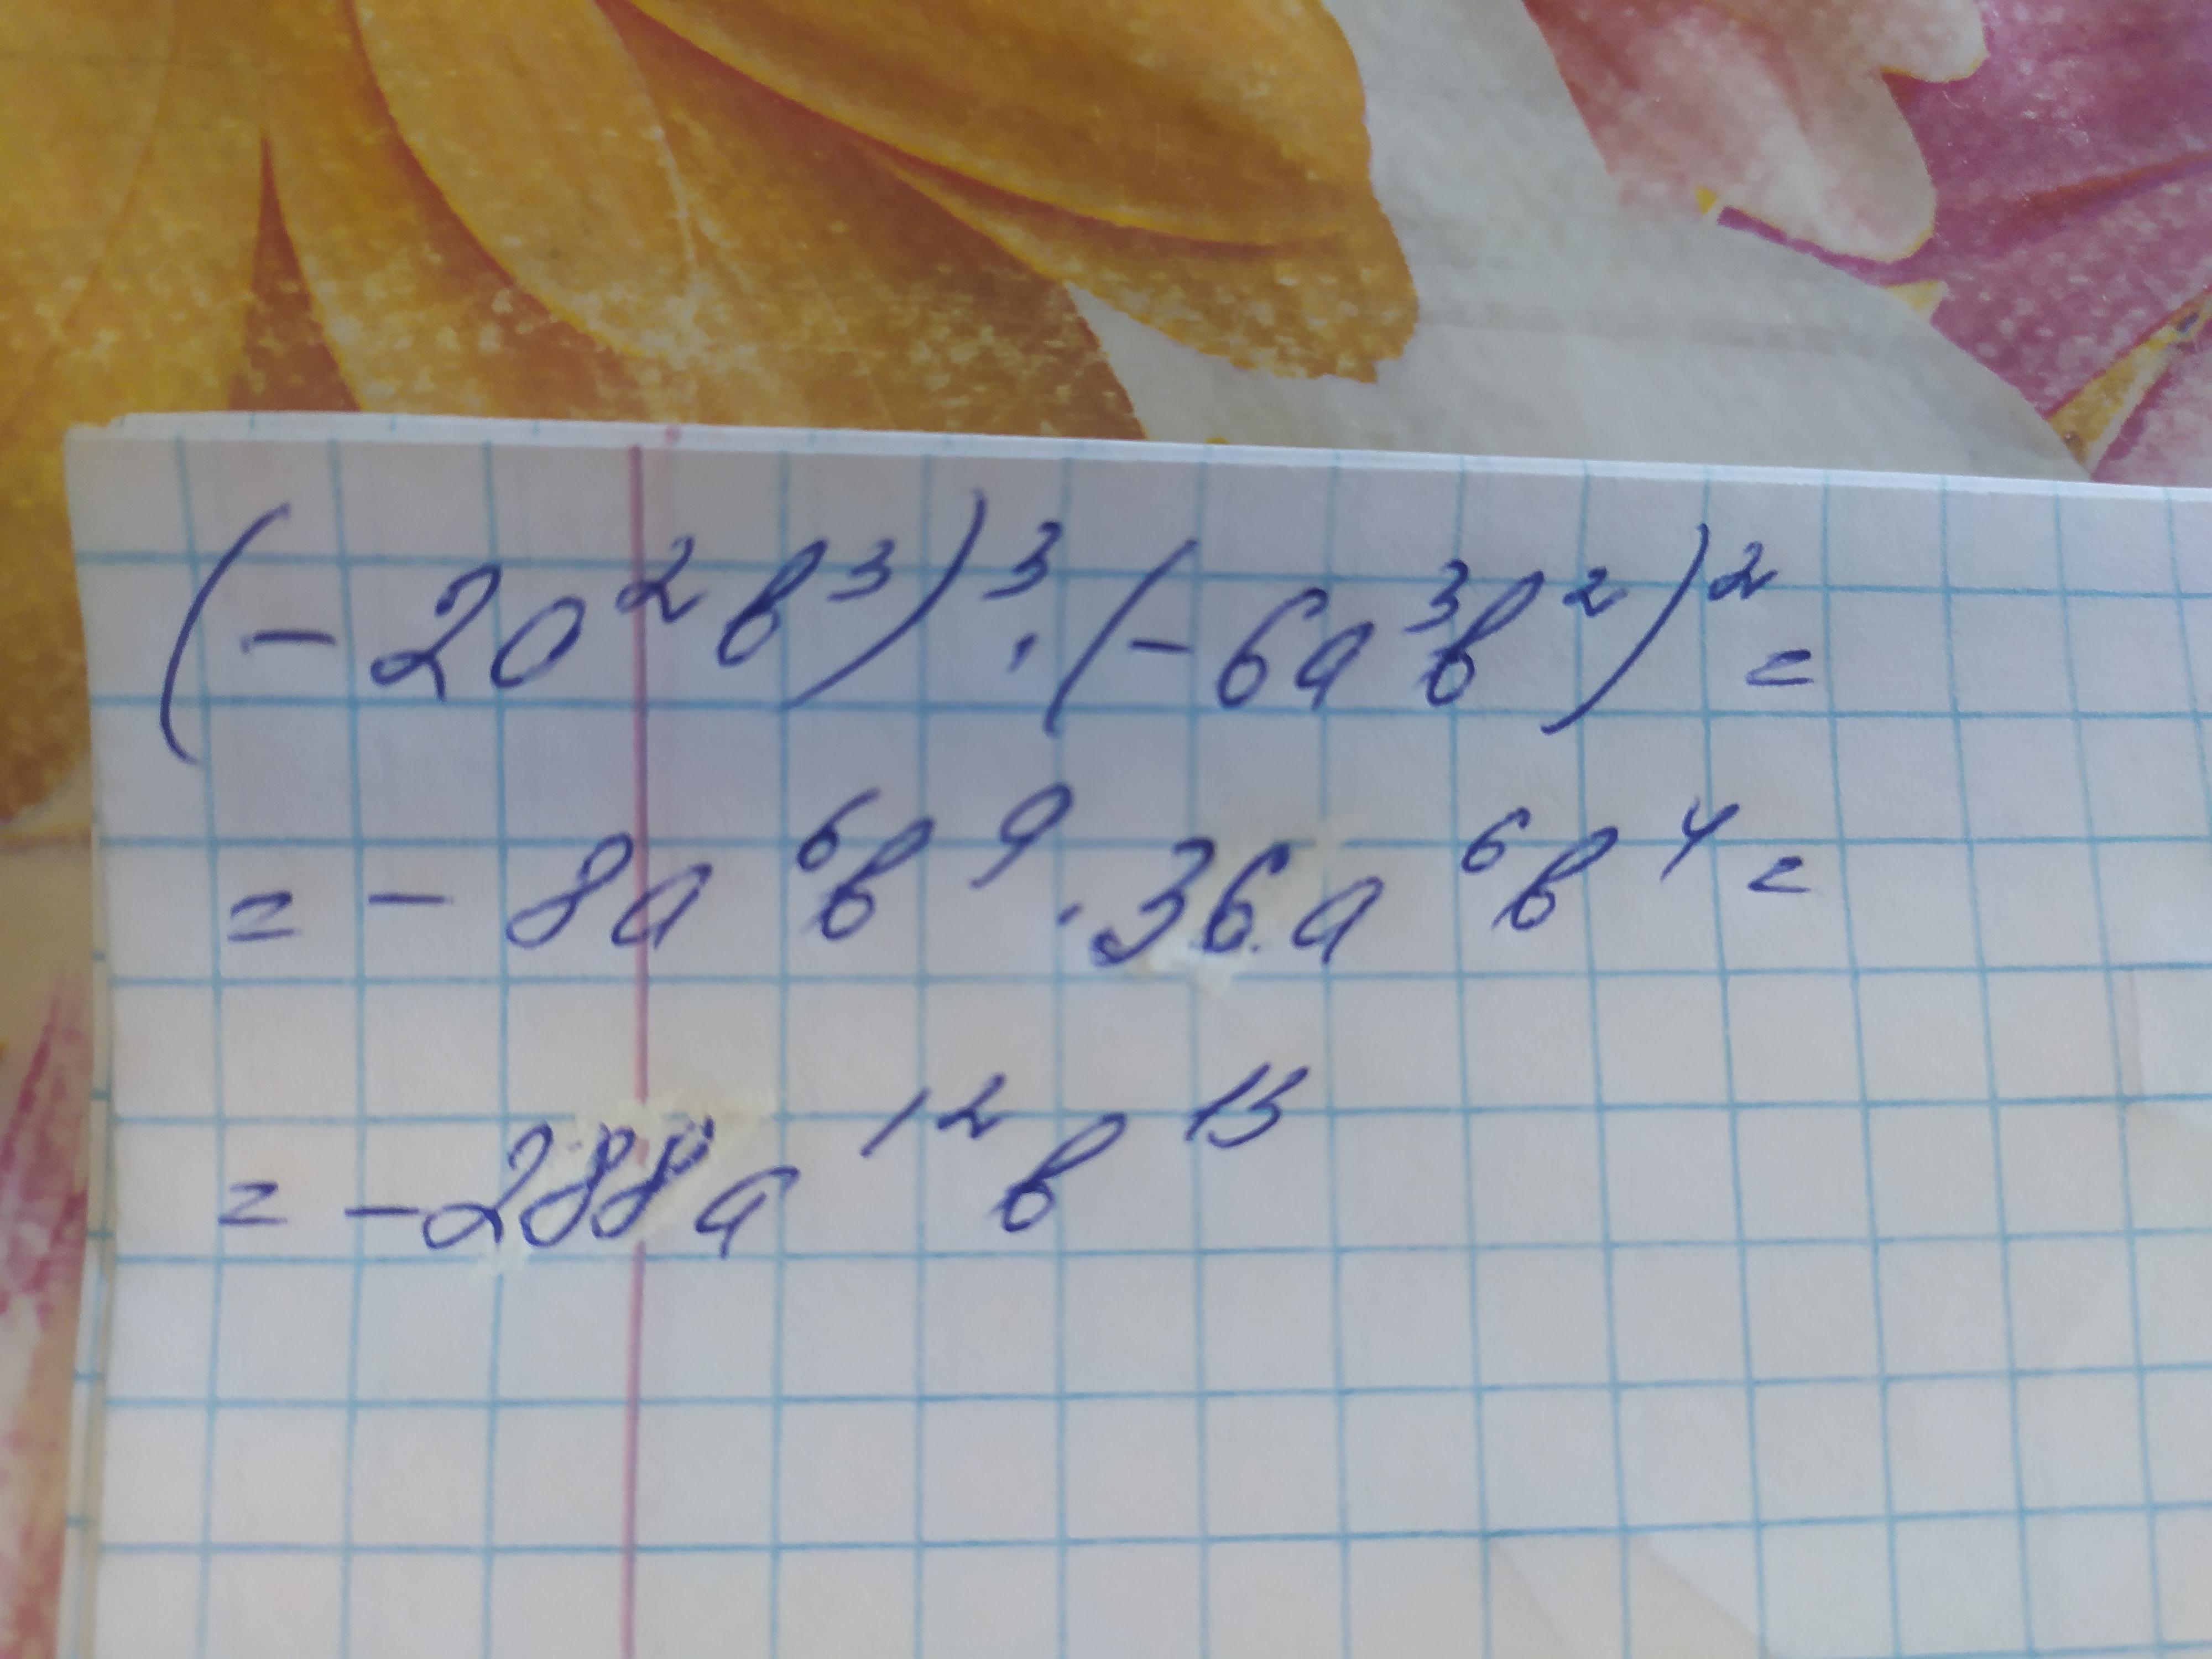 (-2a²b³)³·(-6a³b²)²=
=-8a⁶b⁹·36a⁶b⁴=
=-288a¹²b¹³